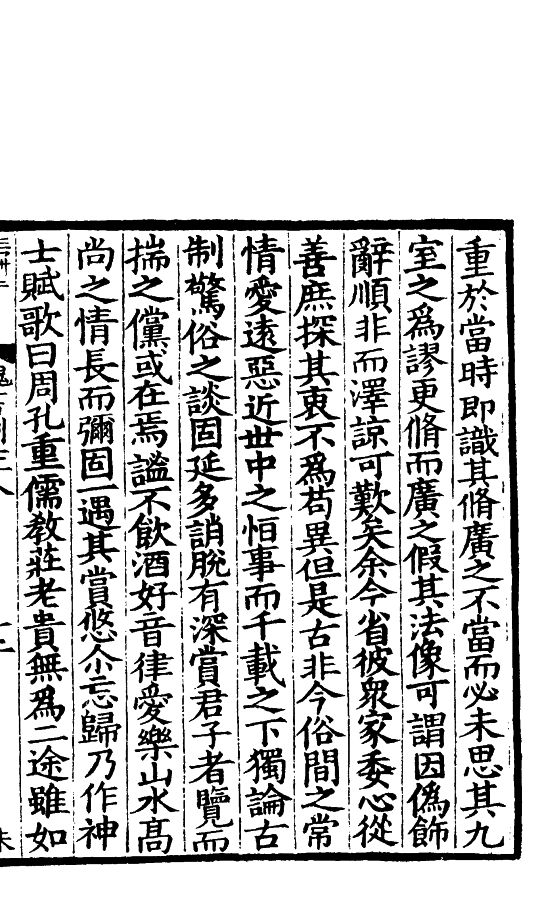 重於當時即識其脩廣之不當而必未思其九
室之爲謬更脩而廣之假其法像可謂因僞飾
辭順非而澤諒可歎矣余今省彼衆家委心從
善庶探其衷不爲苟異但是古非今俗間之常
情愛遠惡近世中之恒事而千載之下獨論古
制驚俗之談固延多誚脫有深賞君子者覽而
揣之儻或在焉謐不飲酒好音律愛樂山水高
尚之情長而彌固一遇其賞悠尒忘歸乃作神
士賦歌曰周孔重儒教莊老貴無爲二途雖如